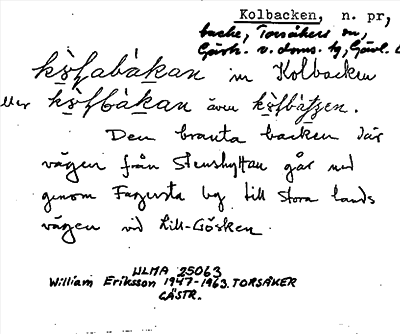 Kolbacken, n. pr,
backe, Torsåkers sn,
Gästr. v. doms. hg, Gävl. l
ko̱labàkan in Kolbacken
eller kòlbàkan även kòlbàtjen.
Den branta backen där
vägen från Stenshyttan går ned
genom Fagersta by till stora lands
vägen vid Lill-Gösken.
ULMA 25063
William Eriksson 1947-1963. TORSÅKER
GÄSTR.